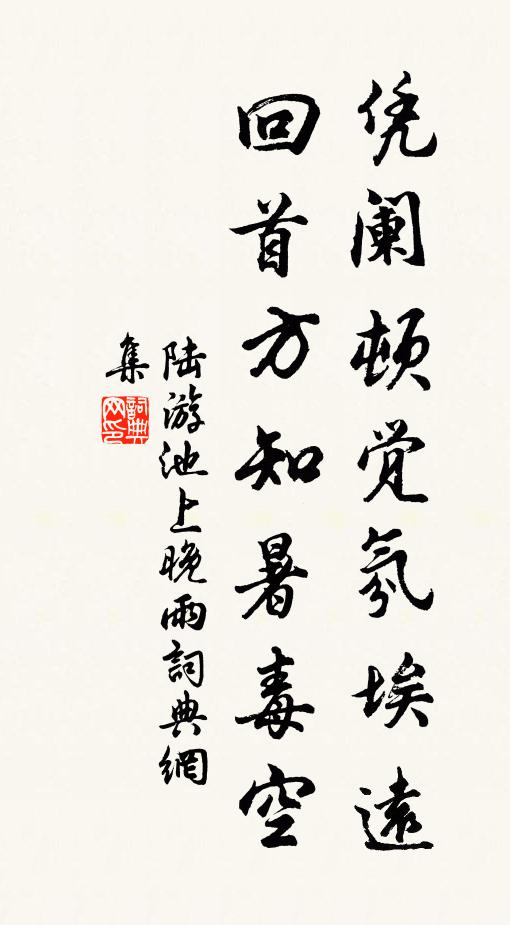 凭阑顿觉氛埃远
回首方知暑毒空
陆游池上晚雨詞典網
集
詞典網印